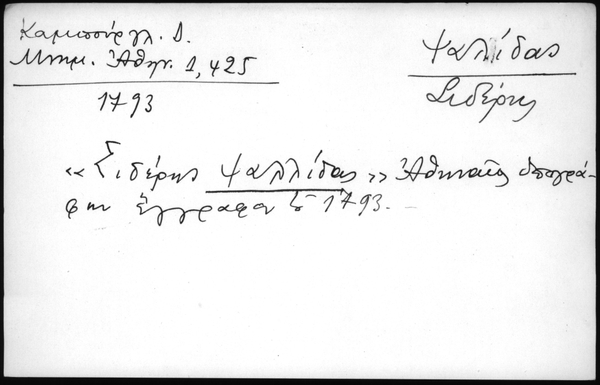 Καμπούργλ. Δ.
Μνημ. Ἀθην. 1, 425
1793
Ψαλίδας
Σιδέρης
« Σιδέρης Ψαλλίδας » Ἀθηναῖος ὑπογρά-
φει ἔγγραφον τοῦ 1793.